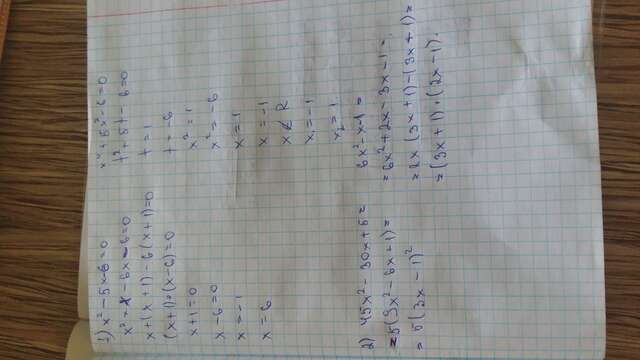 1) x² - 5x - 6 = 0
x² + x - 6x - 6 = 0
x + (x + 1) - 6(x + 1) = 0
(x + 1) · (x - 6) = 0
x + 1 = 0
x - 6 = 0
x = -1
x = 6
x⁴ + 5x² - 6 = 0
t² + 5t - 6 = 0
t = 1
t = -6
x² = 1
x² = -6
x = 1
x = -1
x ∉ R
x₁ = -1
x₂ = 1
2) 45x² - 30x + 5 =
= 5(9x² - 6x + 1) =
= 5(3x - 1)²
6x² - x - 1 =
= 6x² + 2x - 3x - 1 =
= 2x(3x + 1) - (3x + 1) =
= (3x + 1) · (2x - 1).